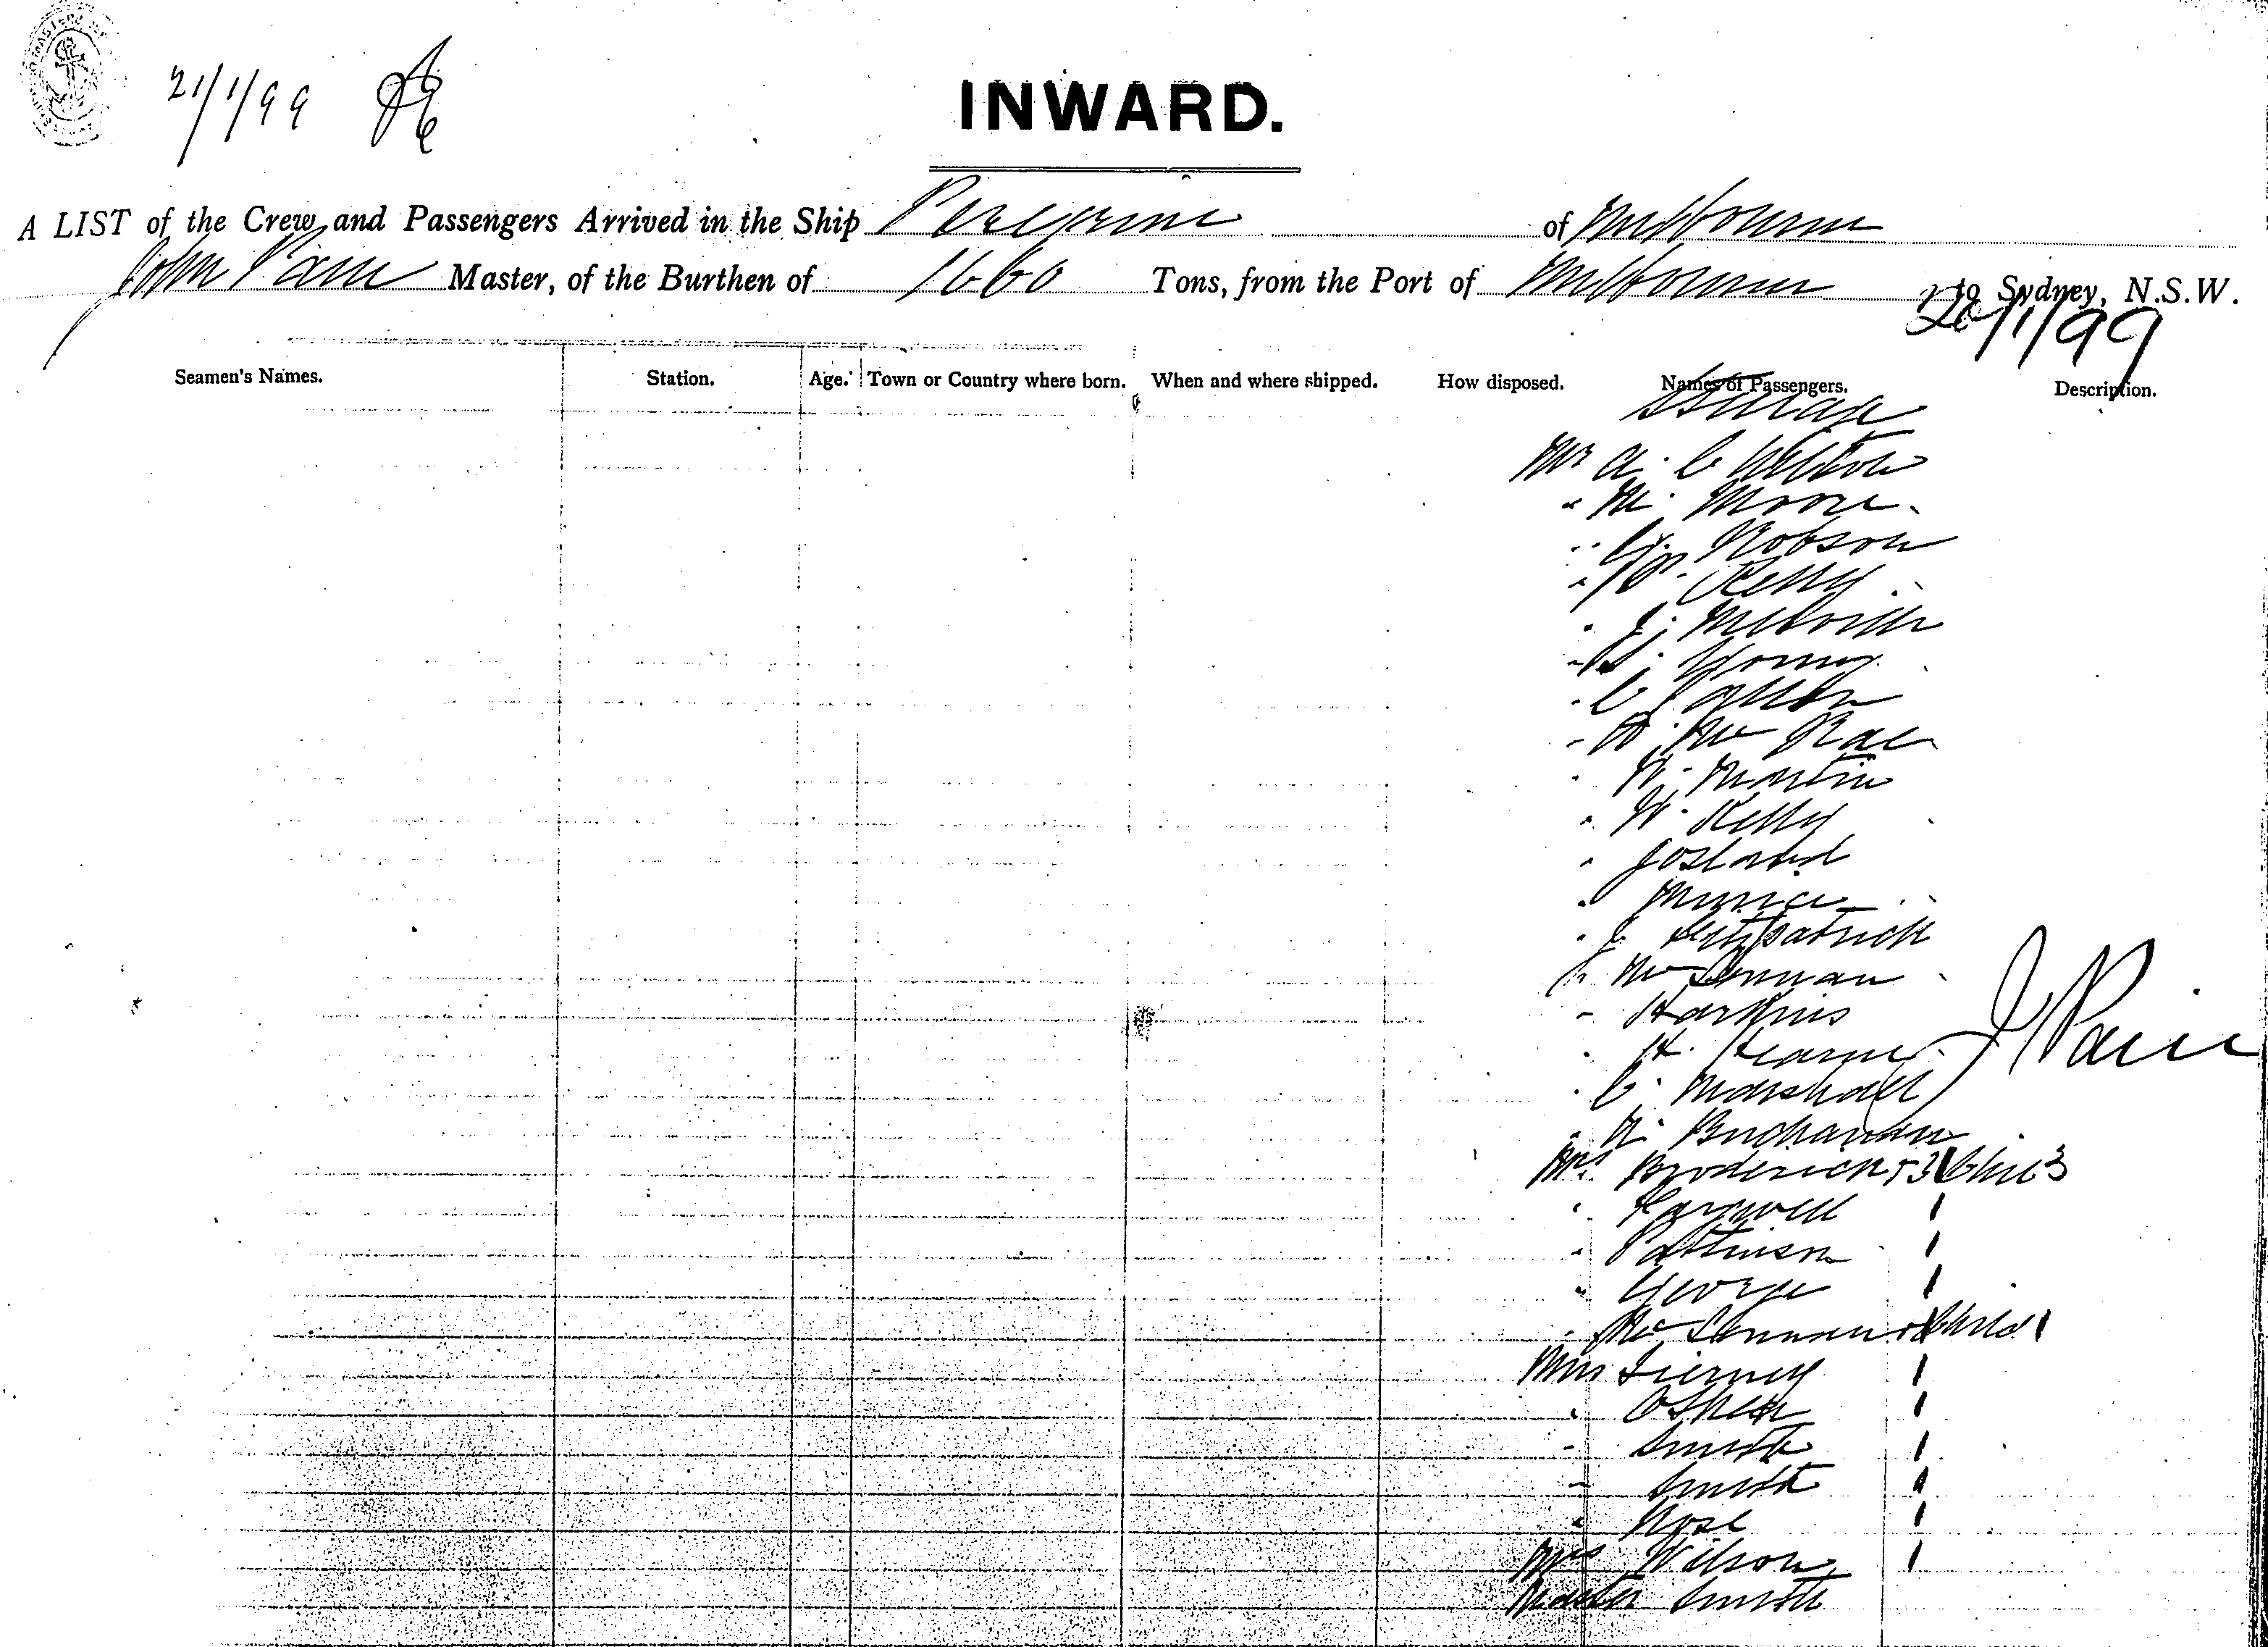 21/1/99
INWARD.
A LIST of the Crew and Passengers Arrived in the Ship Peregrine of Melbourne
John Pain Master, of the Burthen of 1660 Tons, from the Port of Melbourne to Sydney, N.S.W.
20/1/99
Seamen's Names. Station. Age. Town or Country where born. When and where shipped. How disposed. Names of Passengers. Description.
Steerage
Mr A. C
" M. Moore
" Robson
" Kelly
" J. Melville
" Young
" C
" Mc Rae
" W. Martin
" W. Kelly
" Josland
"
" Fitzpatrick
" Mc Lennan
" Harkins
" H. Kearney
" C. Marshall
" Buchanan
Mrs Broderick + 3 Chil 3
"
" Pattinson
" George
" Mc Lennan + Child 1
Miss Tierney
" OShea
" Smith
" Smith
" Rose
Mrs Wilson
Master Smith
J Pain